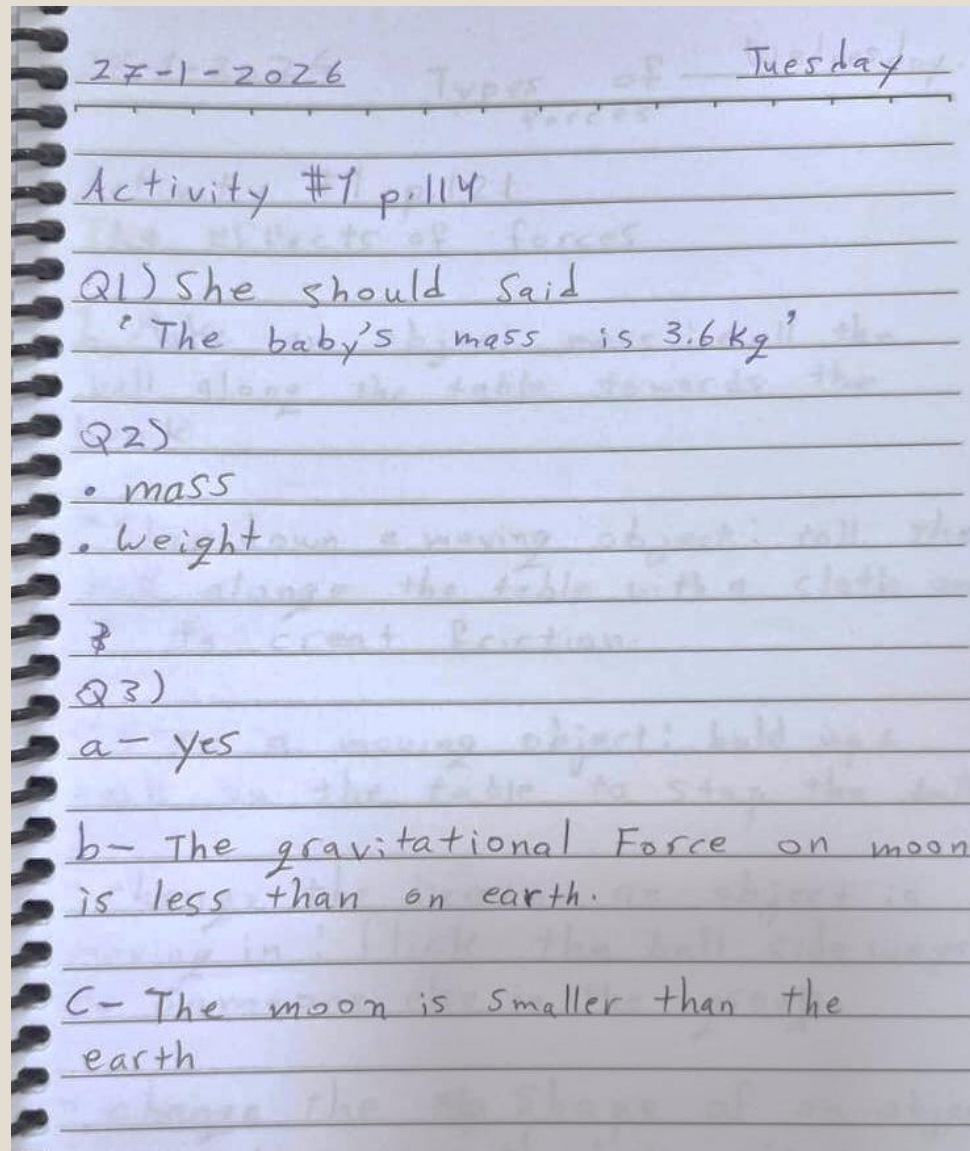 27-1-2026 Tuesday
Activity #1 p.114
Q1) She should Said
‘The baby's mass is 3.6 kg’
Q2)
• mass
• Weight
Q3)
a- yes
b- The gravitational Force on moon
is less than on earth.
C- The moon is smaller than the
earth